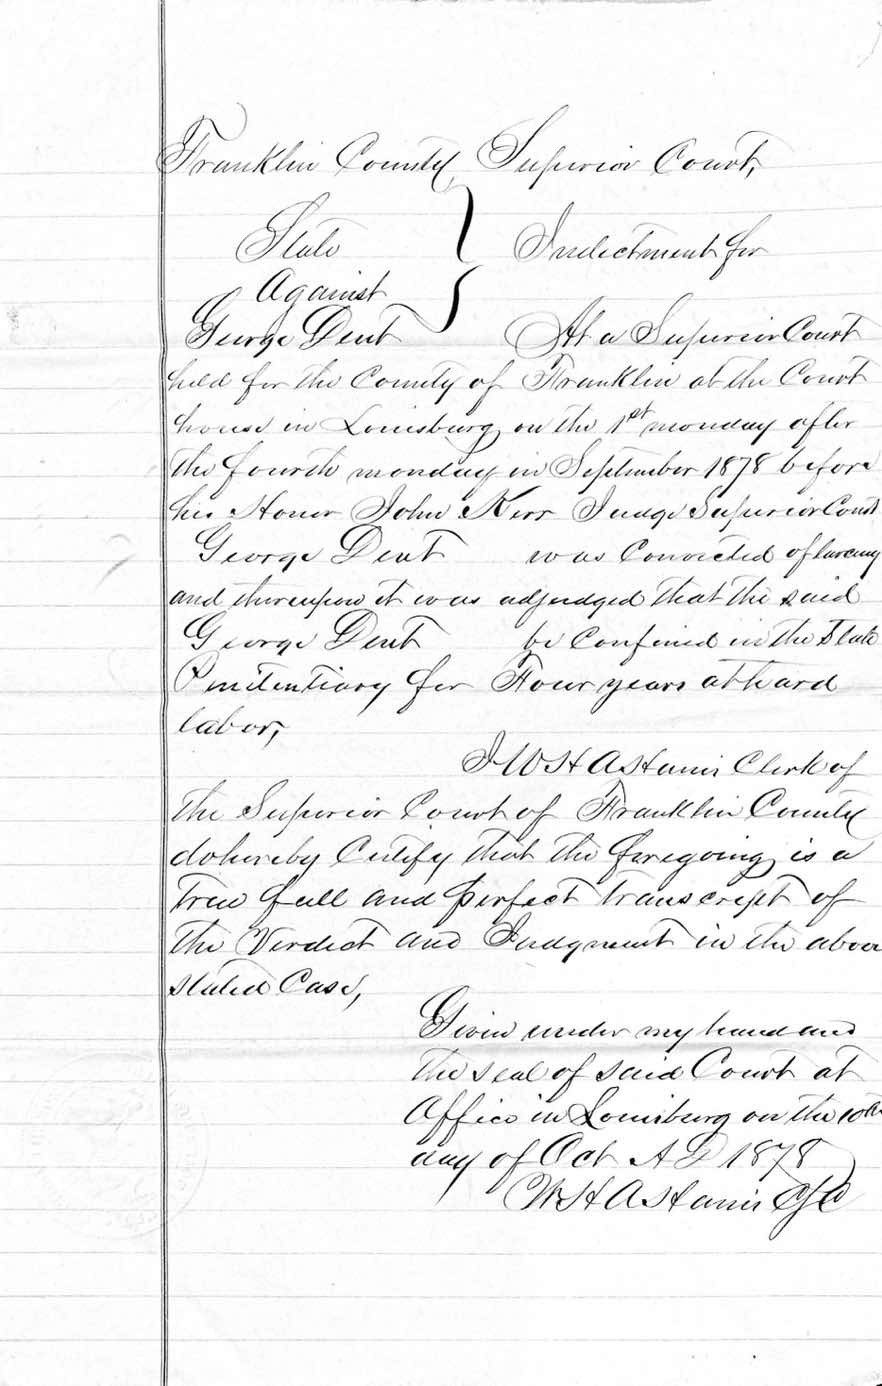 Franklin County, Superior Court,
State
Against
George Dent
Indictment for
At a Superior Court
held for the County of Franklin at the Court
house in Louisburg on the 1st monday after
the fourth monday in September 1878 before
his Honor John Kerr Judge Superior Court
George Dent was Convicted of larceny
and thereupon it was adjudged that the said
George Dent be Confined in the State
Penitentiary for Four years at hard
labor,
I W H Clerk of
the Superior Court of Franklin County
do hereby Certify that the foregoing is a
true full and perfect transcript of
the Verdict and Judgment in the above
stated Case,
Given under my hand and
the seal of said Court at
Office in Louisburg on the 10th
day of Oct A D 1878
W H